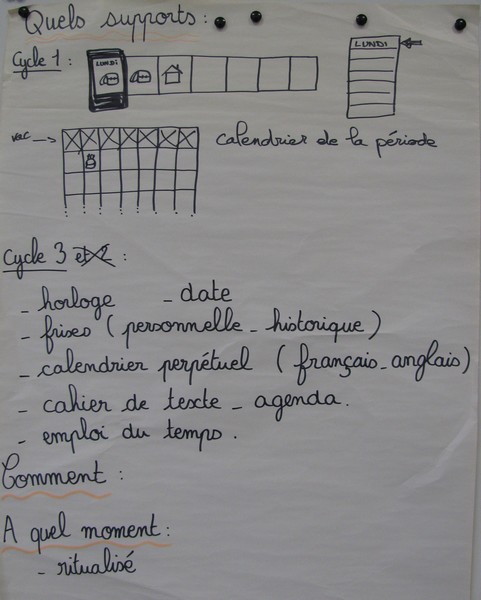 Quels supports :
Cycle 1 :
LUNDI
LUNDI
vac
calendrier de la période
Cycle 3 et 2 :
- horloge - date
- frises (personnelle - historique)
- calendrier perpétuel (français - anglais)
- cahier de texte - agenda.
- emploi du temps.
Comment :
A quel moment :
- ritualisé